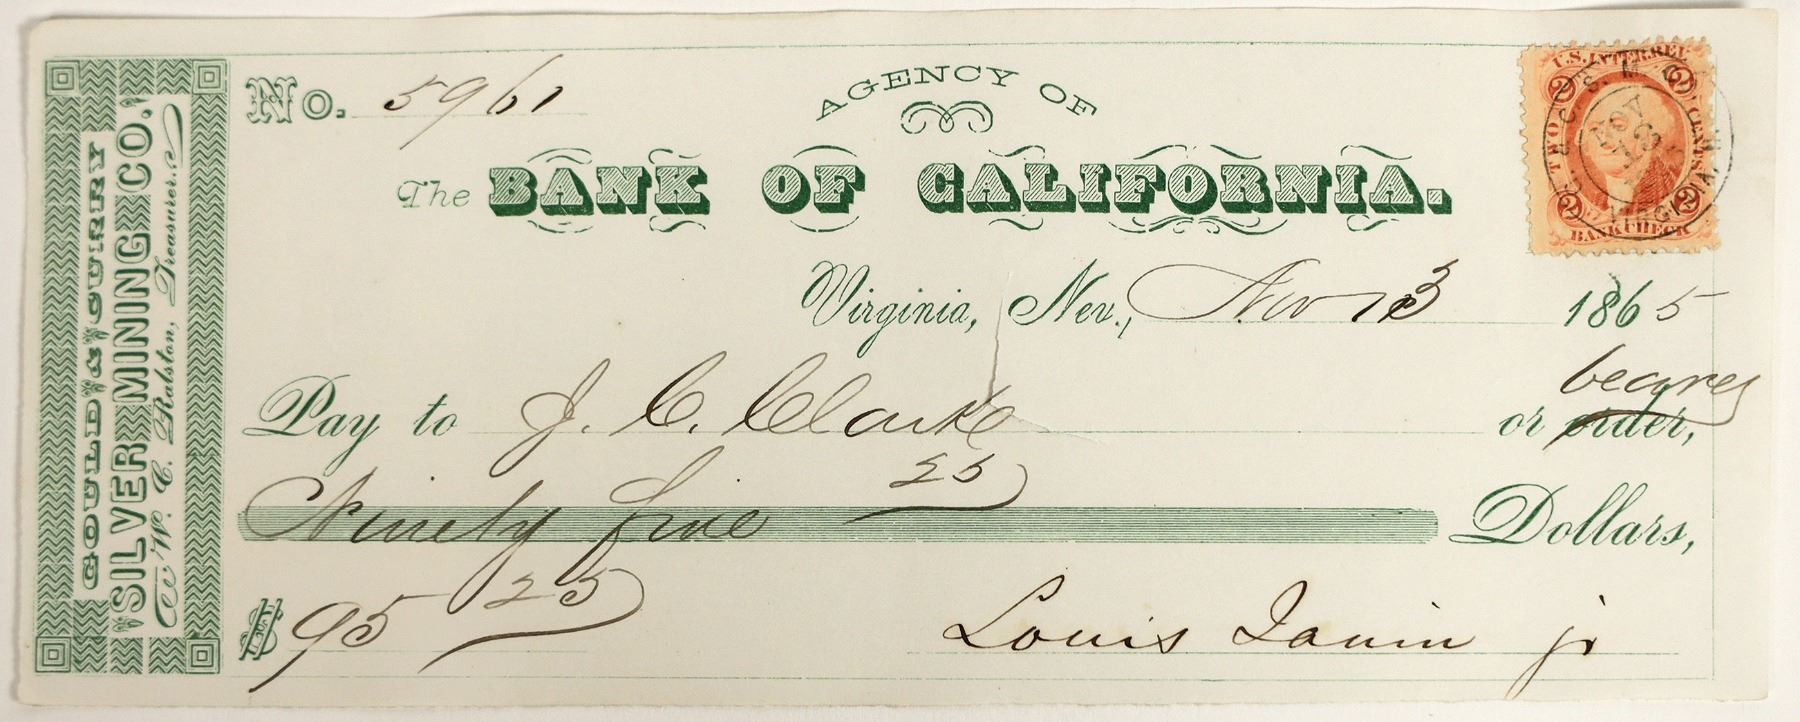 GOULD & CURRY
SILVER MINING CO.
W. C. Ralston, Treasurer.
No. 5961
AGENCY OF
The BANK OF CALIFORNIA.
U.S. INTER. REV.
2 2
TWO CENTS
2 2
BANK CHECK
NOV
13
VIRGINIA
Virginia, Nev., Nov 13 1865
bearer
Pay to J. C. Clarke or order,
Ninety five 25 Dollars,
$ 95 25
Louis Janin jr